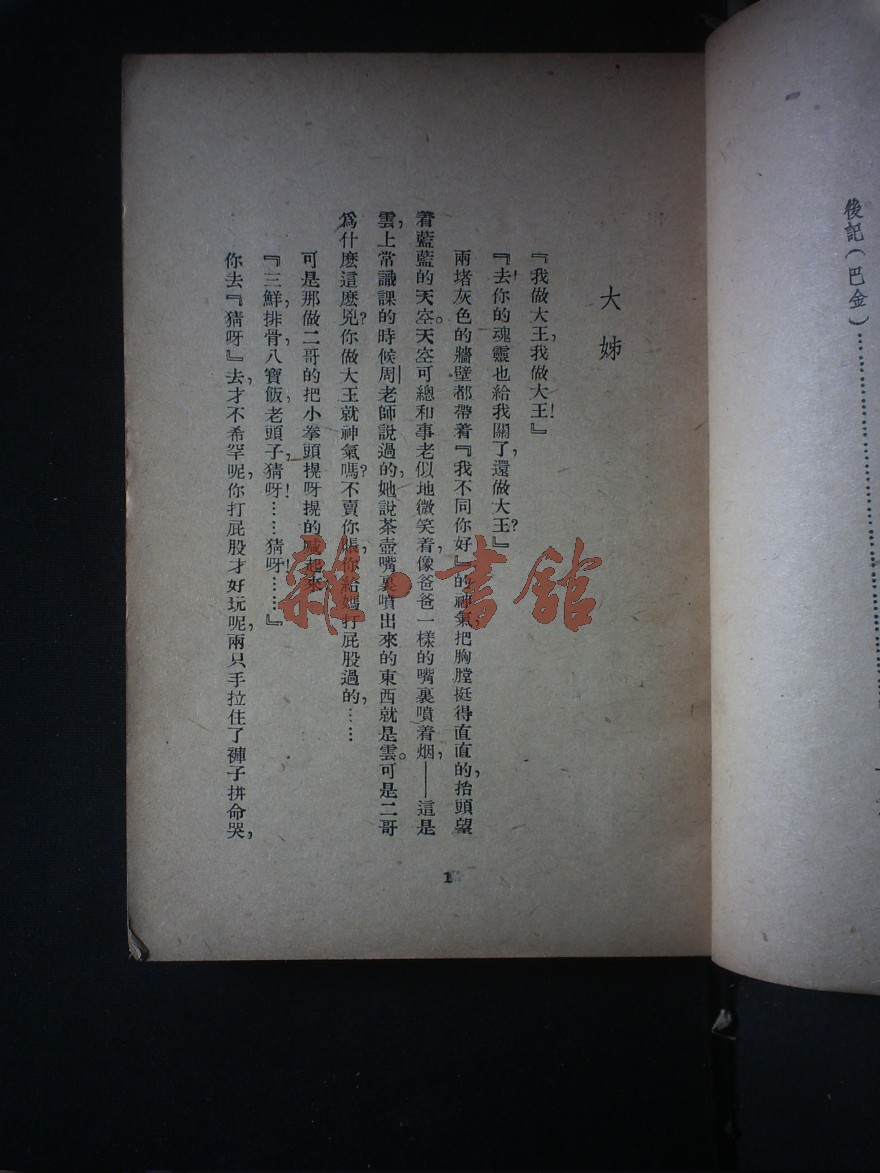 後記（巴金）………………………………
大姊
『我做大王，我做大王！』
『去！你的魂靈也給我關了，還做大王？』
兩堵灰色的牆壁都帶着『我不同你好』的神氣，把胸膛挺得直直的，抬頭望
着藍藍的天空。天空可總和事老似地微笑着，像爸爸一樣的嘴裏噴着烟，——這是
雲，上常識課的時候周老師說過的，她說茶壺嘴裏噴出來的東西就是雲。可是二哥
爲什麽這麽兇？你做大王就神氣嗎？不賣你賬，你給媽打屁股過的，……
可是那做二哥的把小拳頭捏呀捏的喊起來：
『三鮮，排骨，八寶飯，老頭子，猜呀！……猜呀！……』
你去『猜呀』去，才不希罕呢，你打屁股才好玩呢，兩只手拉住了褲子拼命哭，
1
雜·書館